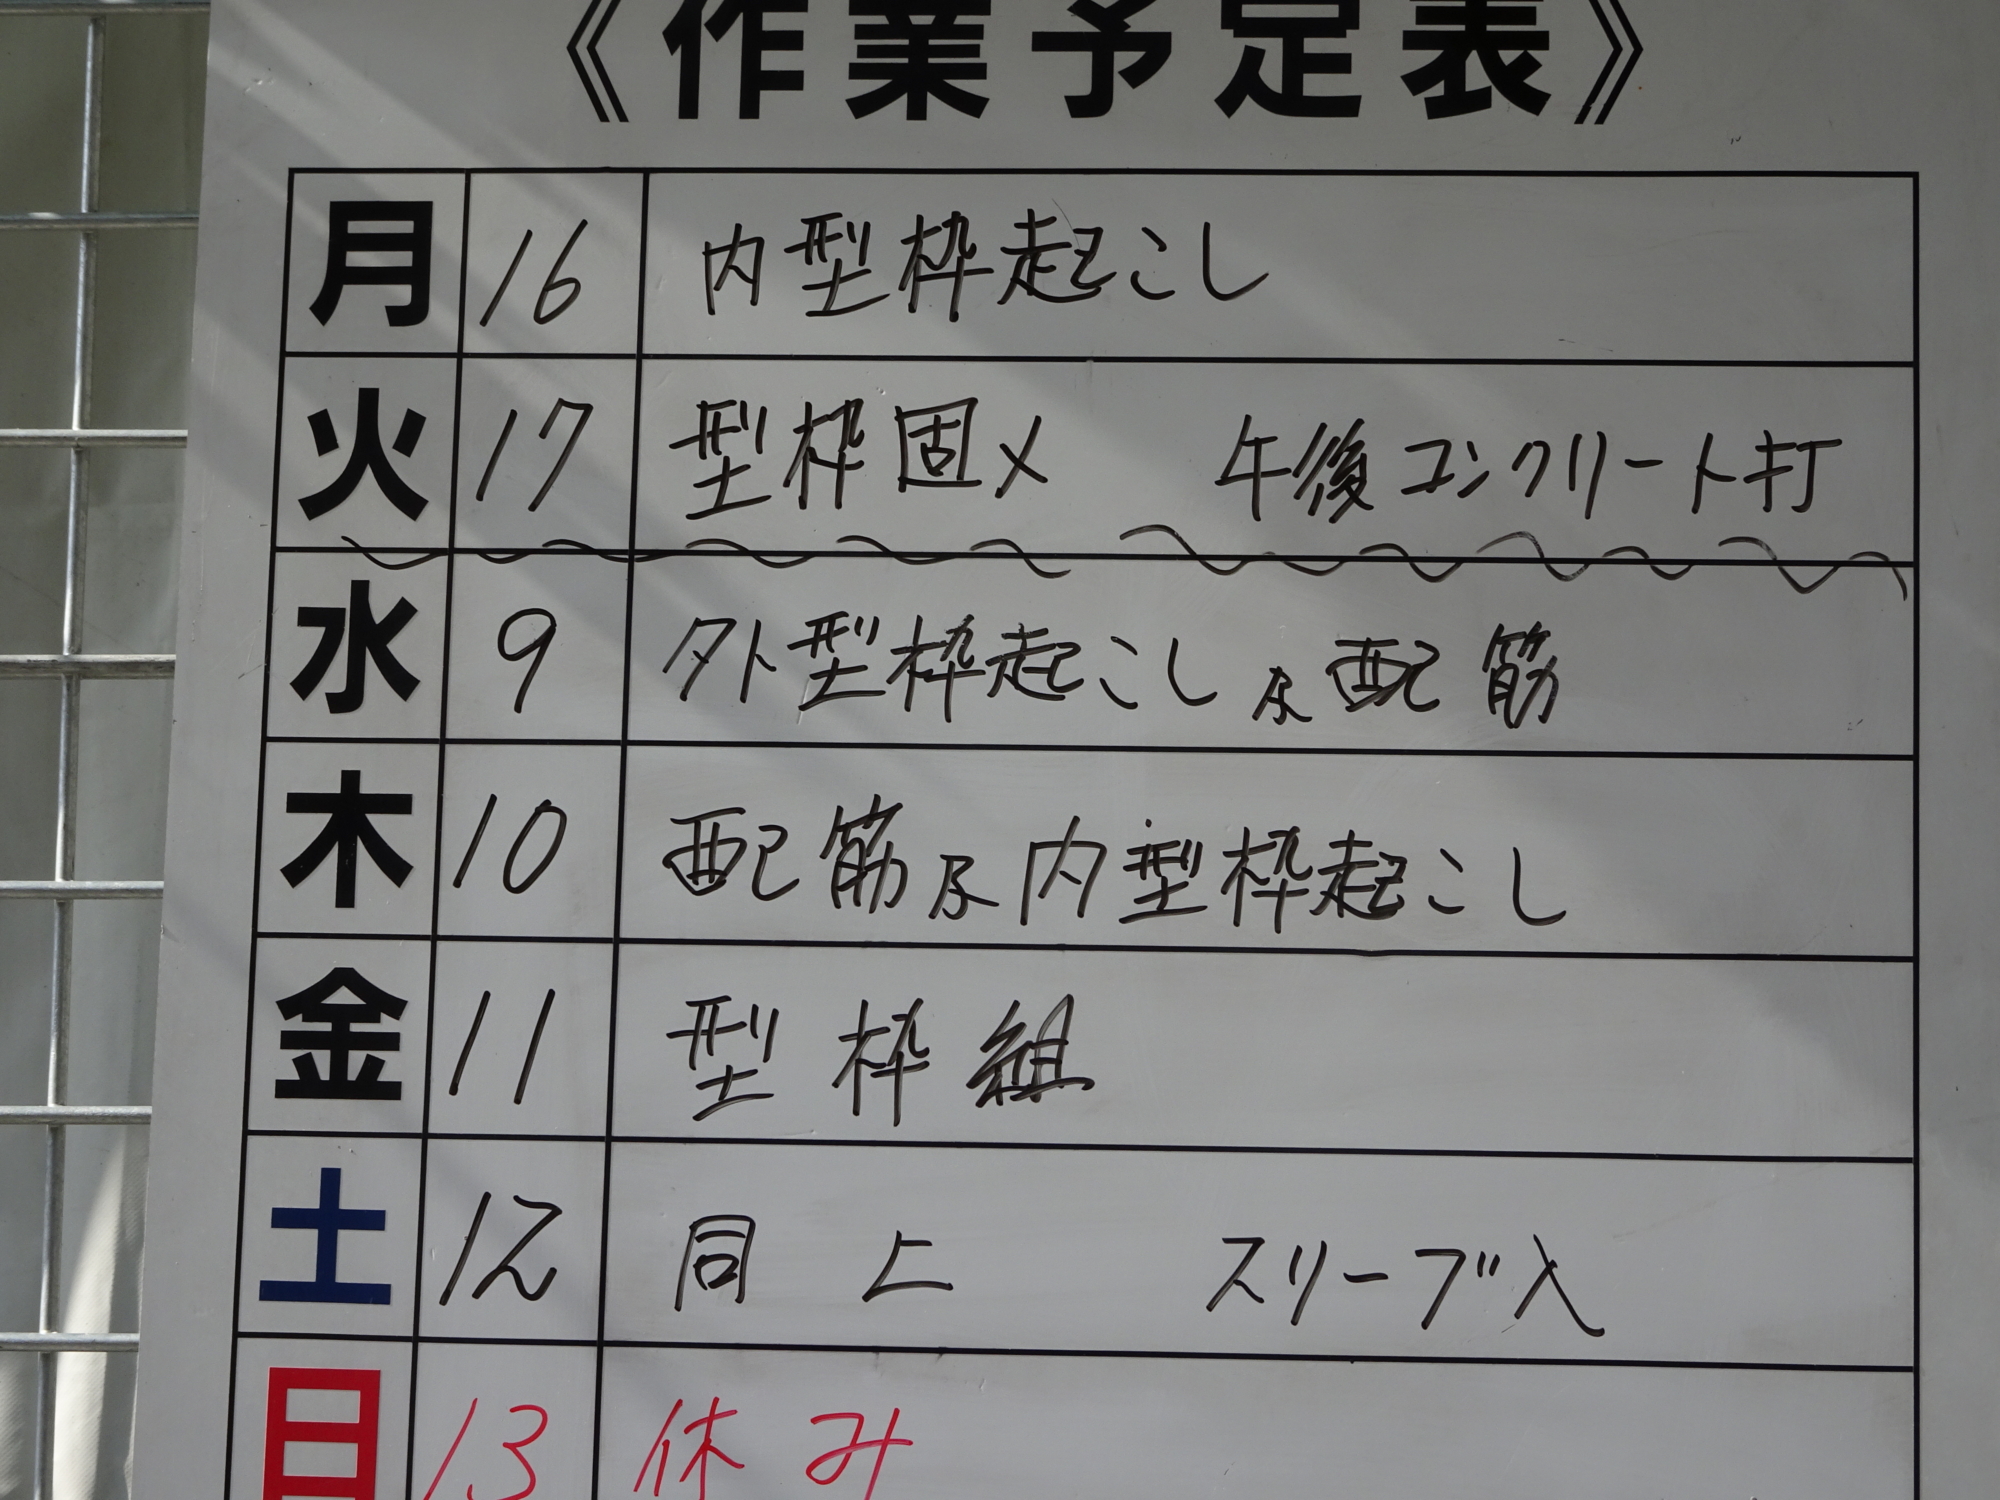 《作業予定表》
月 16 内型枠起こし
火 17 型枠固メ 午後コンクリート打
水 9 外型枠起こし及配筋
木 10 配筋及内型枠起こし
金 11 型枠組
土 12 同上 スリーブ入
日 13 休み